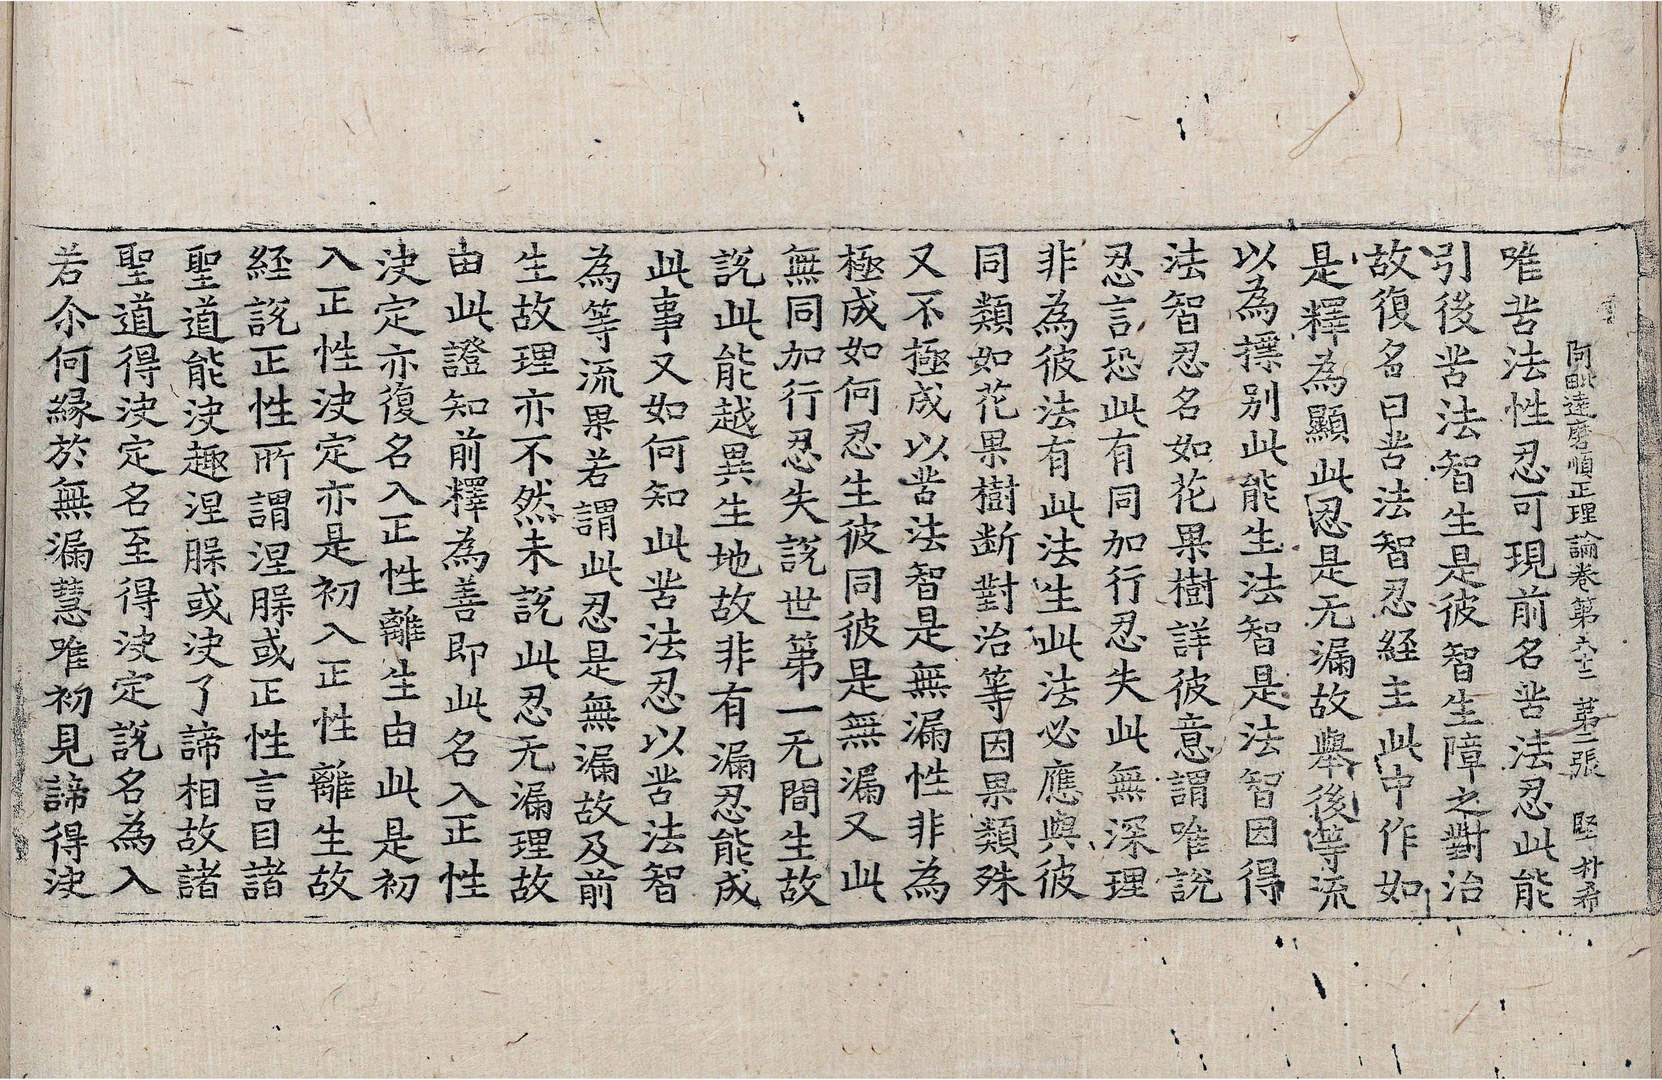 阿毗達磨順正理論卷第六十二 第二張 堅 朴希
唯苦法性忍可現前名苦法忍此能
引後苦法智生是彼智生障之對治
故復名曰苦法智忍經主此中作如
是釋為顯此忍是无漏故舉後等流
以為摽別此能生法智是法智因得
法智忍名如花果樹詳彼意謂唯說
忍言恐此有同加行忍失此無深理
非為彼法有此法生此法必應與彼
同類如花果樹斷對治等因果類殊
又不極成以苦法智是無漏性非為
極成如何忍生彼同彼是無漏又此
無同加行忍失說世第一无間生故
說此能越異生地故非有漏忍能成
此事又如何知此苦法忍以苦法智
為等流果若謂此忍是無漏故及前
生故理亦不然未說此忍无漏理故
由此證知前釋為善即此名入正性
決定亦復名入正性離生由此是初
入正性決定亦是初入正性離生故
經說正性所謂涅槃或正性言目諸
聖道能決趣涅槃或決了諦相故諸
聖道得決定名至得決定說名為入
若尒何緣於無漏慧唯初見諦得決